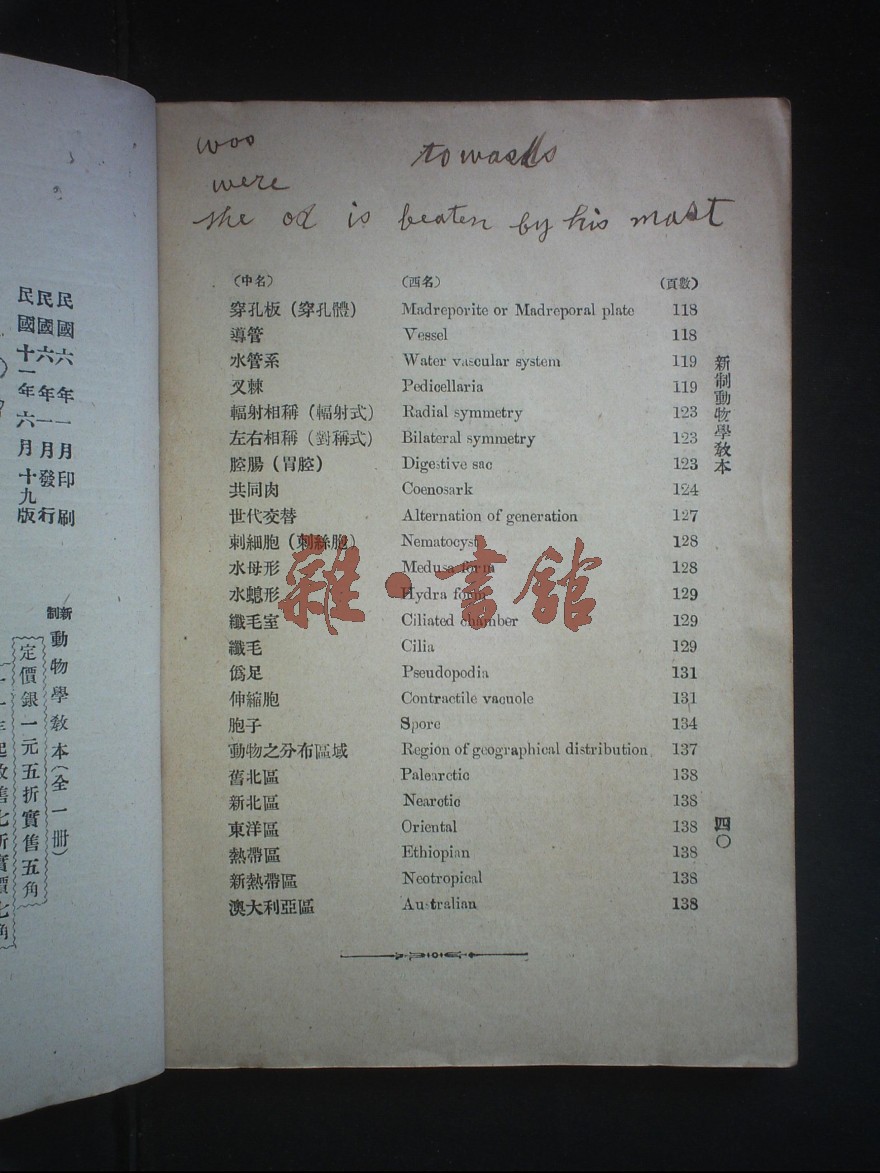 woo
towards
were
the od is beaten by his mast
(中名) (西名) (頁數)
穿孔板(穿孔體) Madreporite or Madreporal plate 118
導管 Vessel 118
水管系 Water vascular system 119
叉棘 Pedicellaria 119
輻射相稱(輻射式) Radial symmetry 123
左右相稱(對稱式) Bilateral symmetry 123
腔腸(胃腔) Digestive sac 123
共同肉 Coenosark 124
世代交替 Alternation of generation 127
刺細胞(刺絲胞) Nematocyst 128
水母形 Medusa form 128
水螅形 Hydra form 129
纖毛室 Ciliated chamber 129
纖毛 Cilia 129
僞足 Pseudopodia 131
伸縮胞 Contractile vacuole 131
胞子 Spore 134
動物之分布區域 Region of geographical distribution 137
舊北區 Palearctic 138
新北區 Nearctic 138
東洋區 Oriental 138
熱帶區 Ethiopian 138
新熱帶區 Neotropical 138
澳大利亞區 Australian 138
新制動物學教本
四〇
雜·書館
民國六年一月印刷
民國六年一月發行
民國十一年六月十九版
新制動物學教本(全一册)
定價銀一元五折實售五角